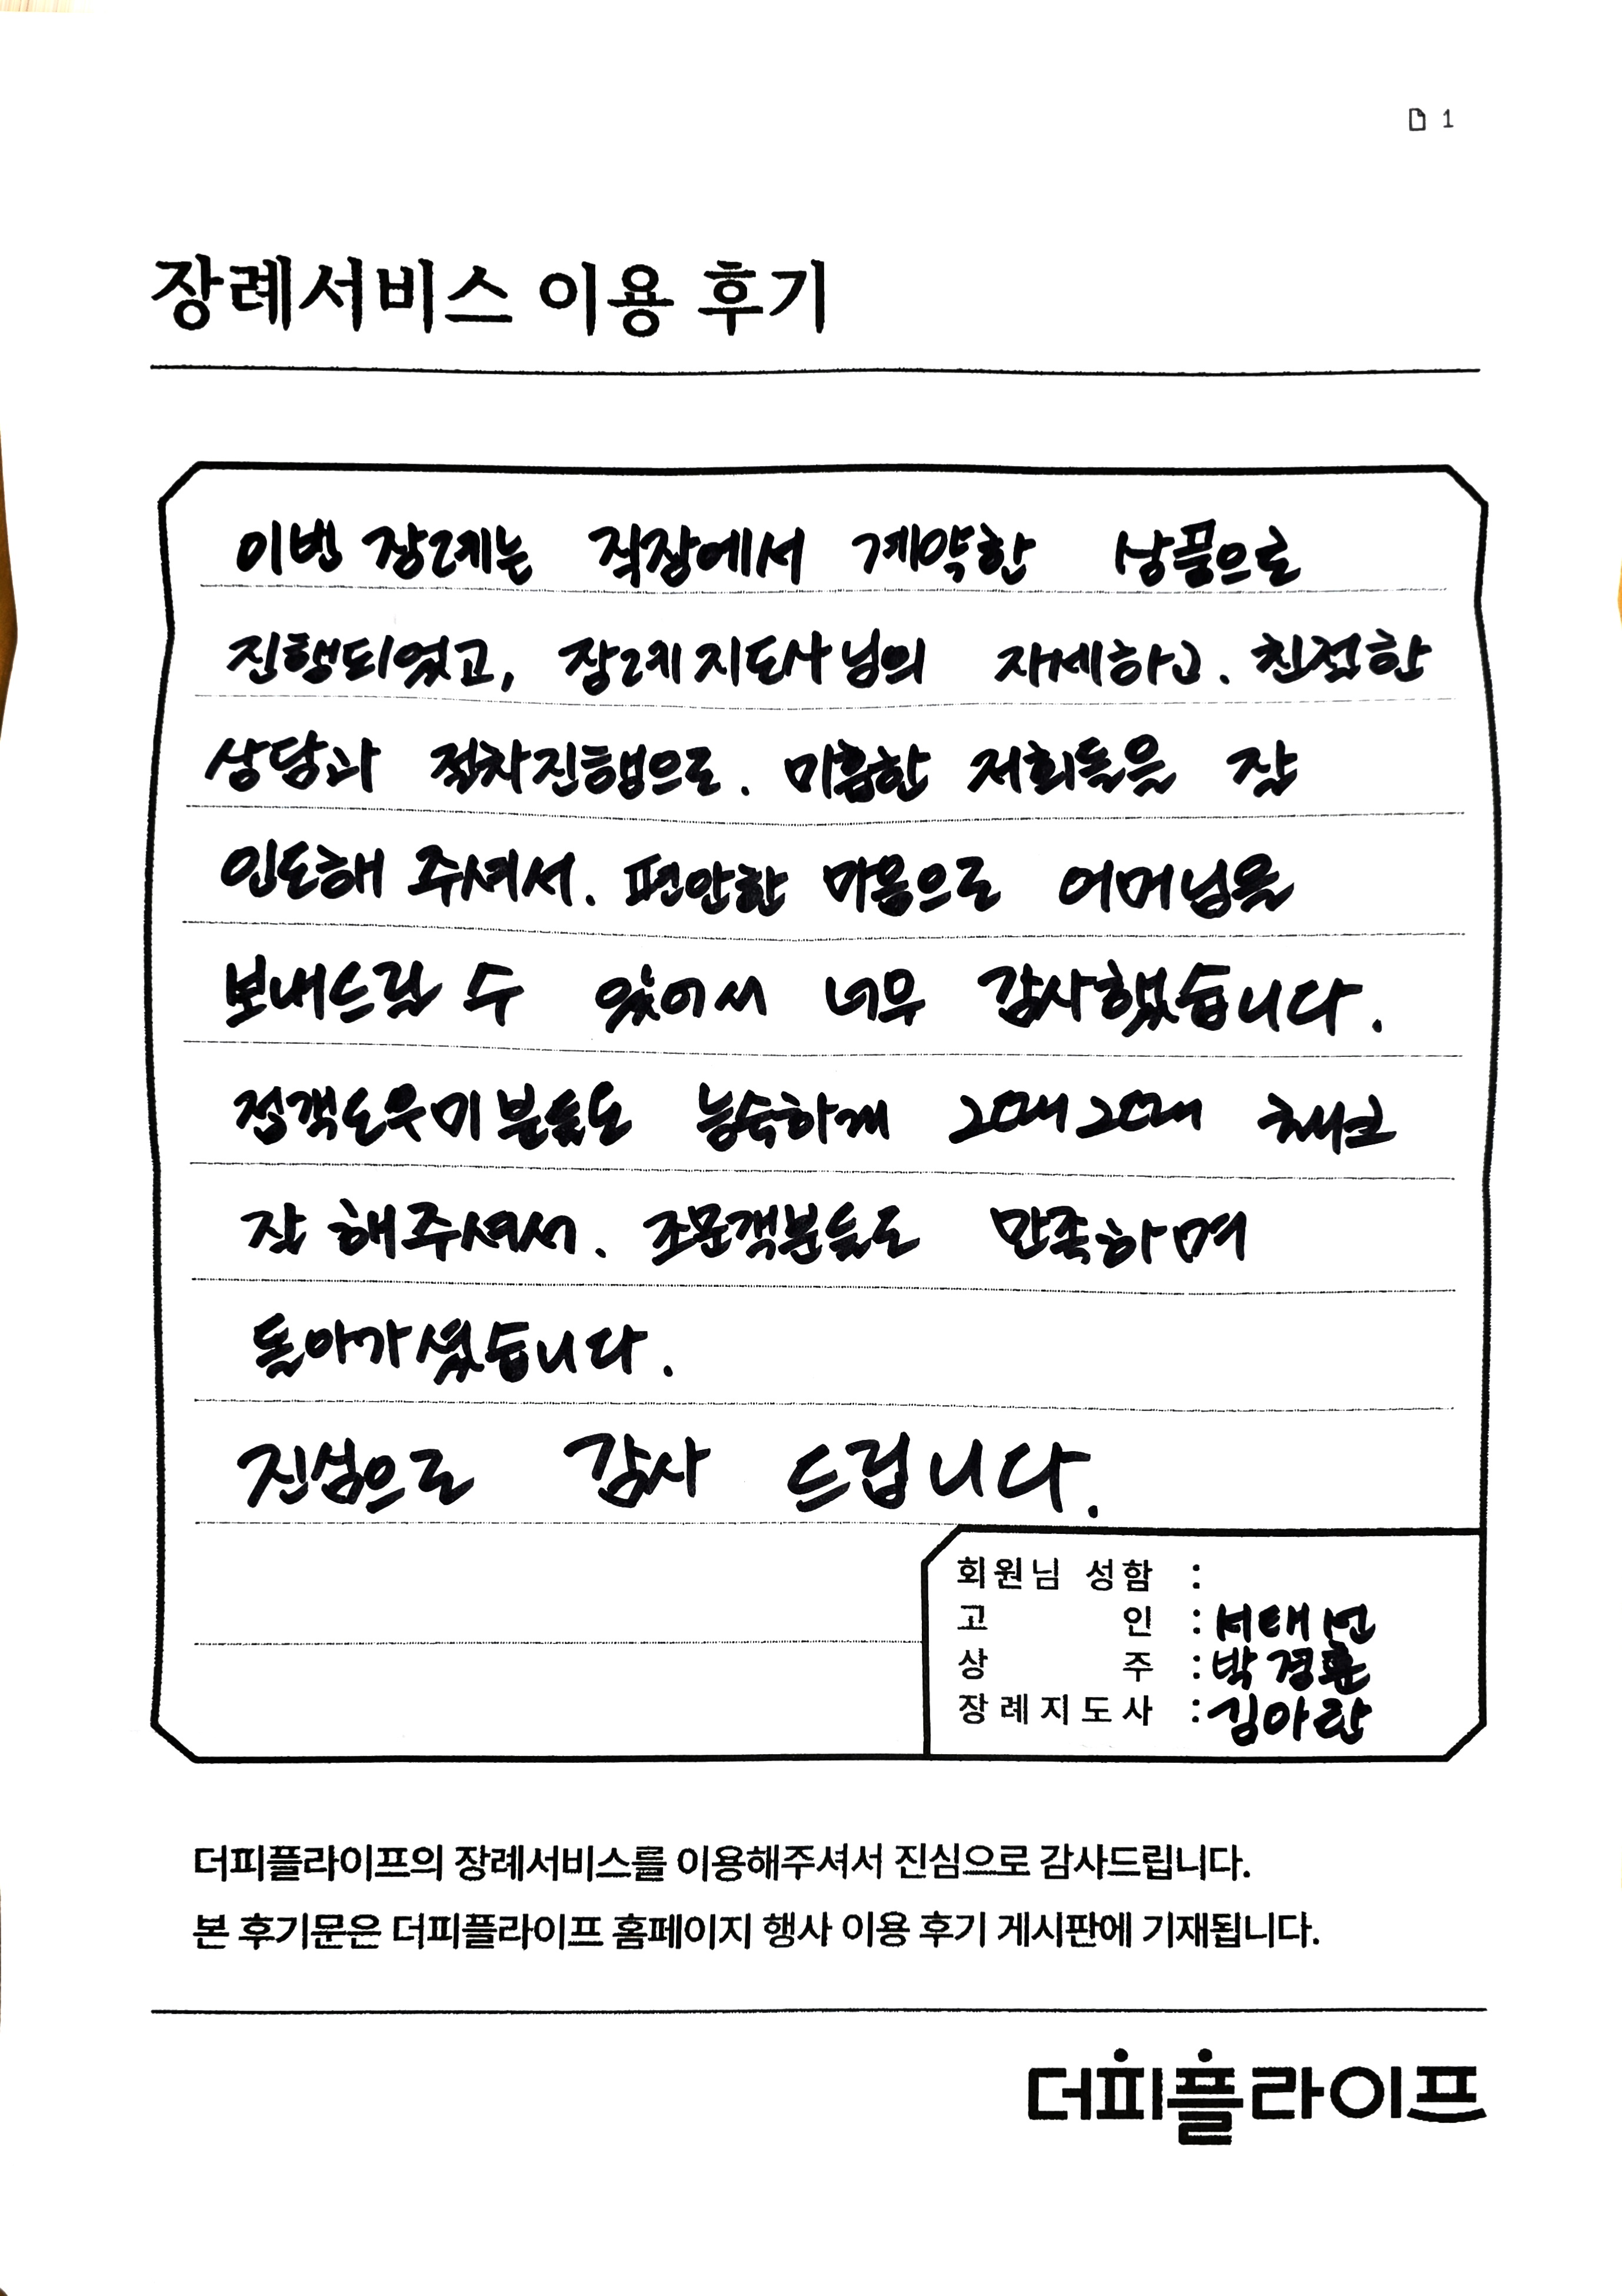 1
장례서비스 이용 후기
이번 장례는 직장에서 계약한 상품으로
진행되었고, 장례지도사님의 자세하고. 친절한
상담과 절차진행으로. 미흡한 저희들을 잘
인도해 주셔서. 편안한 마음으로 어머님을
보내드릴 수 있어서 너무 감사했습니다.
접객도우미분들도 능숙하게 그때그때 체크
잘 해주셔서. 조문객분들도 만족하며
돌아가셨습니다.
진심으로 감사 드립니다.
회원님 성함 :
고 인 : 서태선
상 주 : 박경훈
장례지도사 : 김아란
더피플라이프의 장례서비스를 이용해주셔서 진심으로 감사드립니다.
본 후기문은 더피플라이프 홈페이지 행사 이용 후기 게시판에 기재됩니다.
더피플라이프